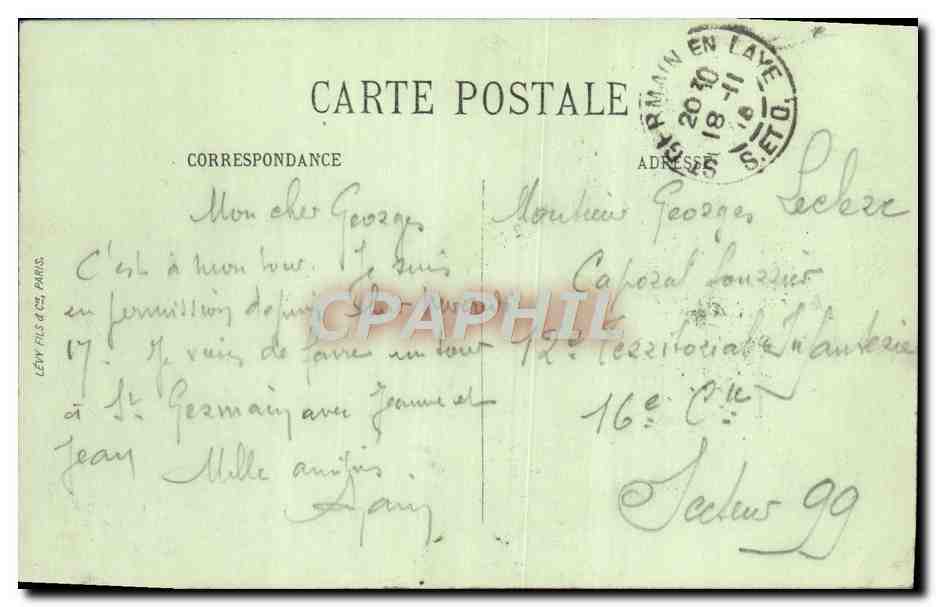 CARTE POSTALE
CORRESPONDANCE
ADRESSE
ST GERMAIN EN LAYE
20 30
18 -11
18
S. ET O.
LÉVY FILS & Cie, PARIS.
Mon cher Georges
C'est à mon tour. Je suis
en permission depuis
17. Je viens de faire un tour
à St Germain avec Jeanne et
Jean Mille amitiés.
Monsieur Georges Leclerc
Caporal fourrier
12e Territorial Infanterie
16e Cie
Secteur 99
CPAPHIL